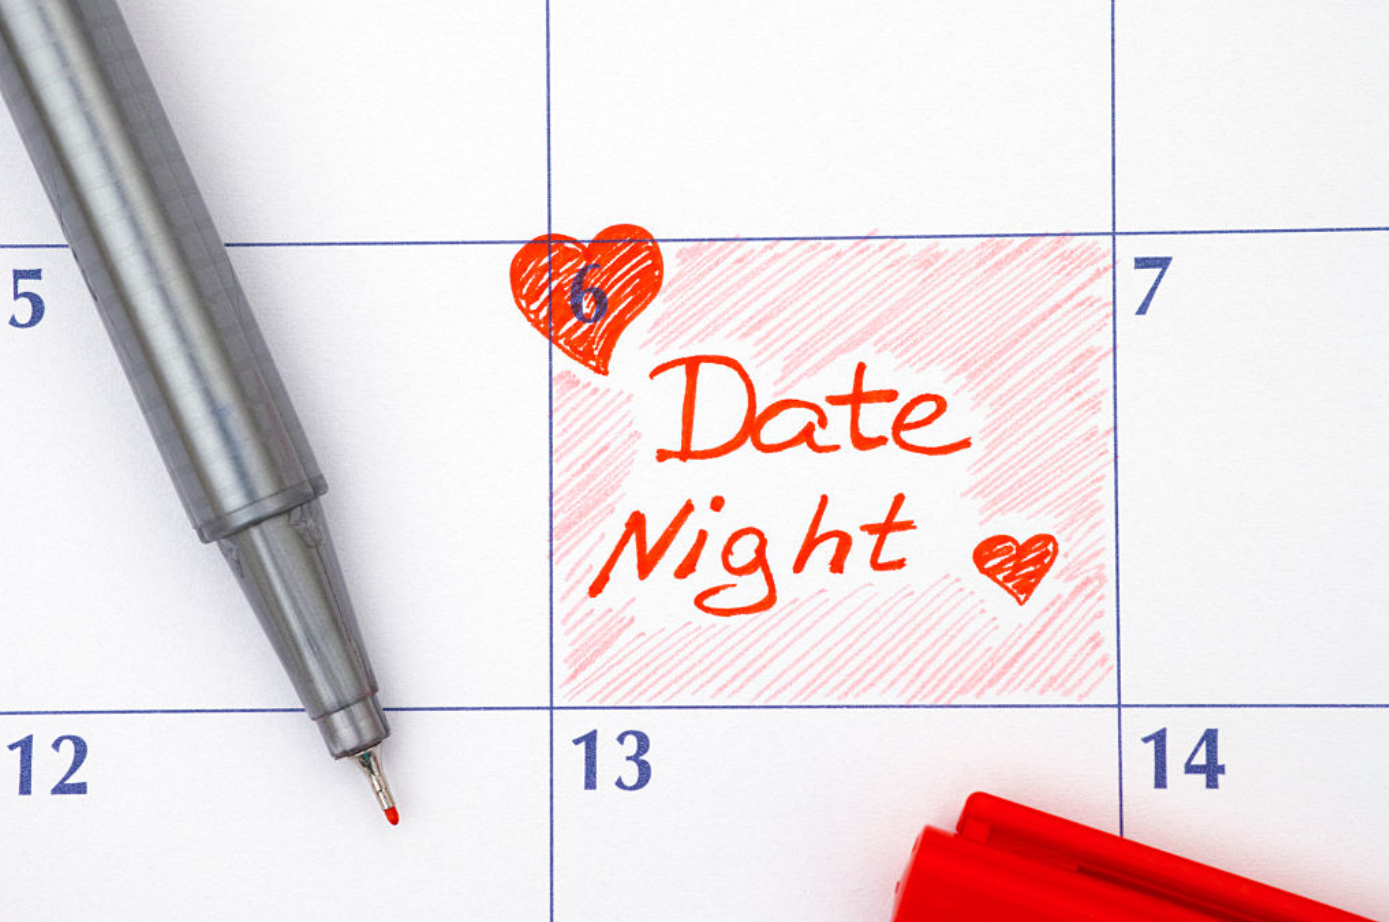 5
6
7
Date
Night
12
13
14